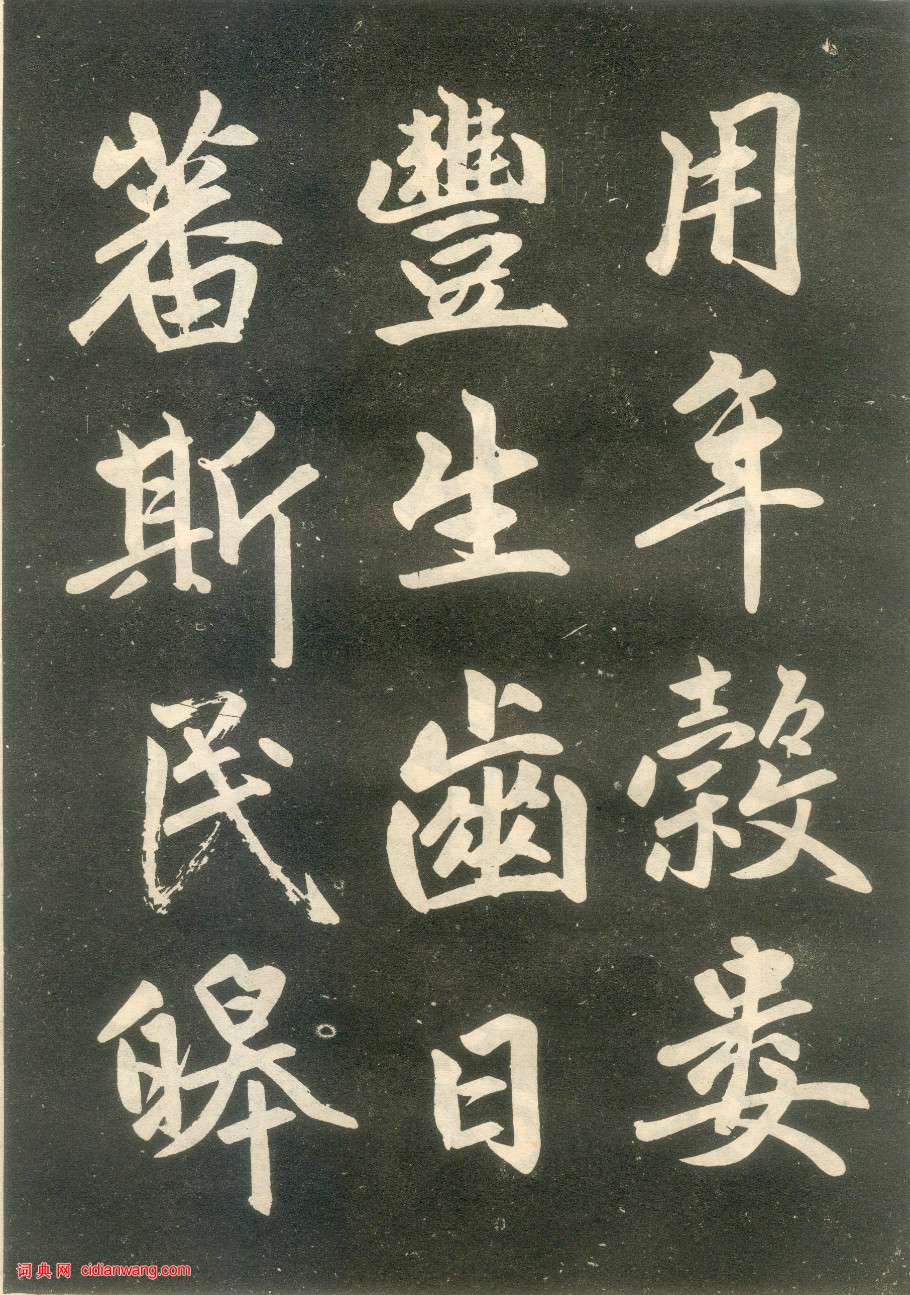 用年穀婁
豐生齒日
蕃斯民皞
词典网 cidianwang.com